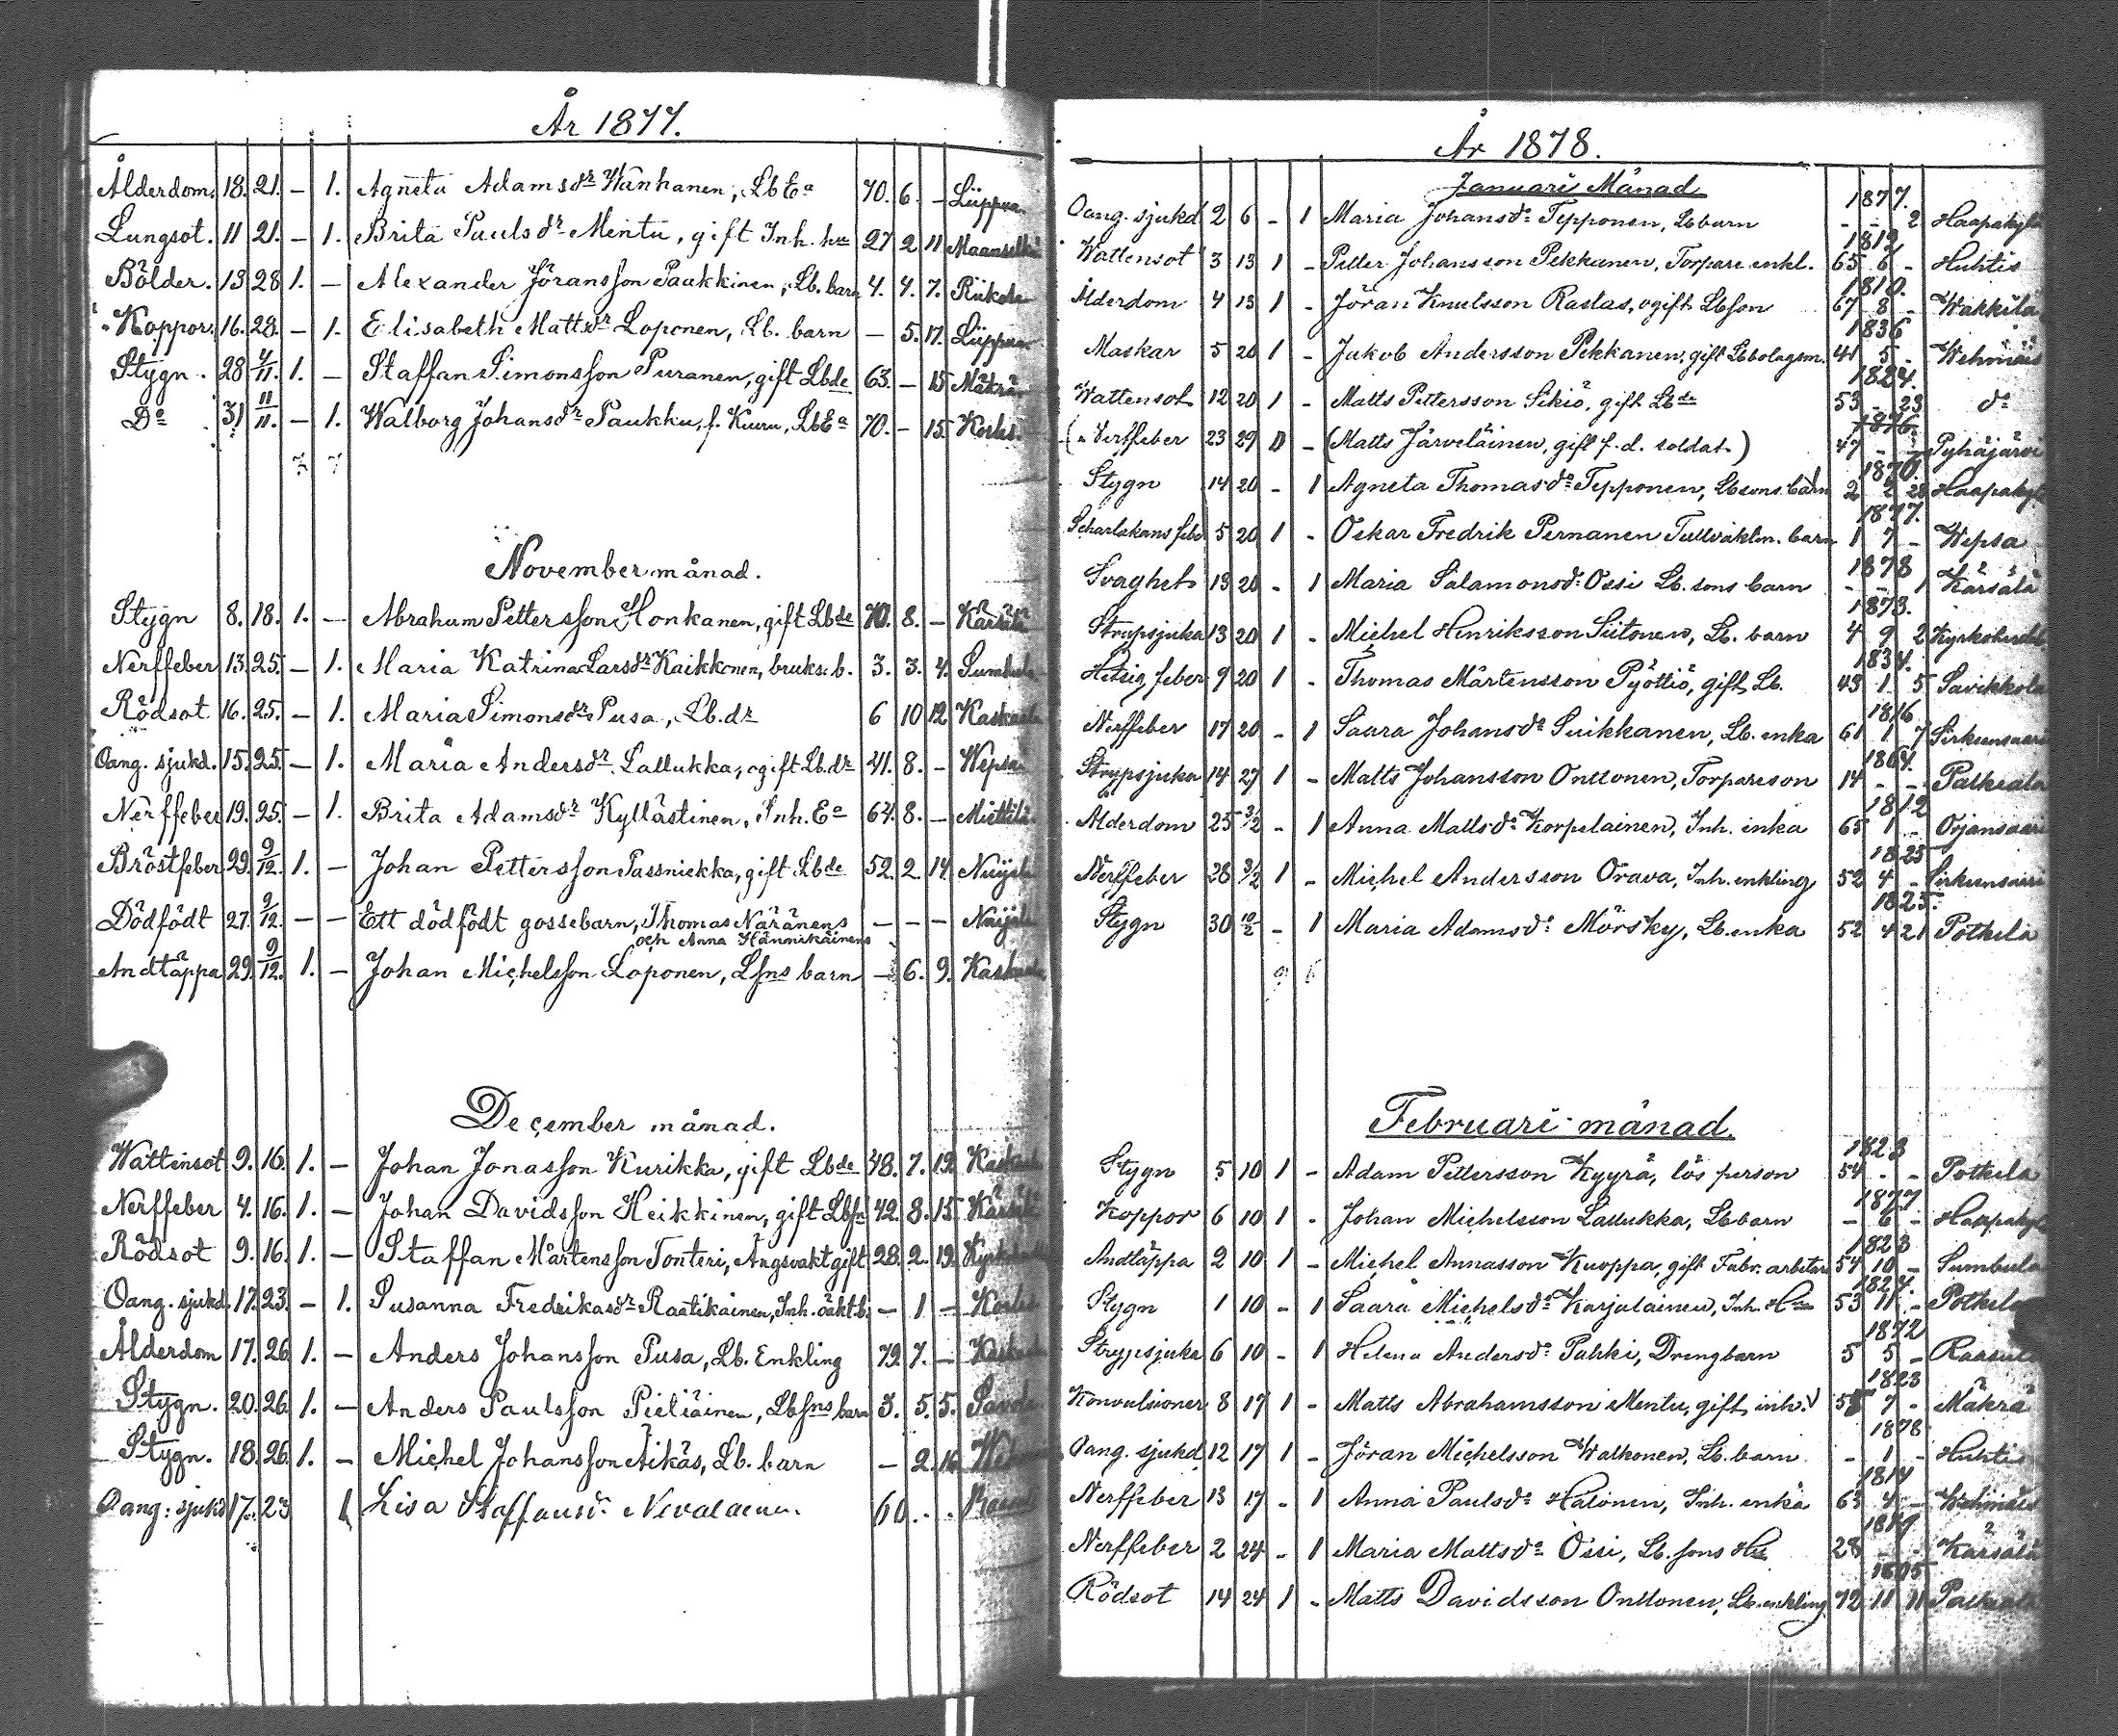 År 1877.
Ålderdom. 18. 21. – 1. Agneta Adamsdr Wanhanen, Lb Ea 70. 6. – Lüppua
Lungsot. 11 21. – 1. Brita Paulsdr Mentu, gift Inh. hu 27 2 11 Maanselkä
Bölder. 13 28 1. – Alexander Jöransson Paukkinen, Lb. barn 4. 4. 7. Riikola
Koppor. 16. 28. – 1. Elisabeth Mattsdr Loponen, Lb. barn – 5. 17. Lüppua
Stygn. 28 4/11. 1. – Staffan Simonsson Puranen, gift Lbde 63. – 15
Do 31 11/11. – 1. Walborg Johansdr Paukku, f. Kuuru, LbEa 70. – 15.
November månad.
Stygn 8. 18. 1. – Abraham Pettersson Honkanen, gift Lbde 70. 8. – Kärsälä
Nerffeber 13. 25. – 1. Maria Katrina Larsdr Kaikkonen, bruks. b. 3. 3. 4. Sumbula
Rödsot 16. 25. – 1. Maria Simonsdr Pusa, Lb. dr 6 10 12
Oang. sjukd. 15. 25. – 1. Maria Andersdr Lallukka, ogift Lb. dr 41. 8. – Wepsa
Nerffeber 19. 25. – 1. Brita Adamsdr Kyllästinen, Inh. Ea 64. 8. – Miettilä
Bröstfeber 29. 9/12. 1. – Johan Pettersson Passniekka, gift Lbde 52. 2. 14.
Dödfödt 27. 9/12. – – Ett dödfödt gossebarn, Thomas Näränens – – –
och Anna Hännikäinens
Andtäppa 29. 9/12. 1. – Johan Michelsson Loponen, Lsns barn – 6. 9.
December månad.
Wattensot 9. 16. 1. – Johan Jonasson Kurikka, gift Lbde 48. 7. 19.
Nerffeber 4. 16. 1. – Johan Davidsson Heikkinen, gift Lbsn 42. 8. 15. Kärsälä
Rödsot 9. 16. 1. – Staffan Mårtensson Tonteri, Ångsvakt gift 28. 2. 19.
Oang. sjukd. 17. 23. – 1. Susanna Fredrikasdr Raatikainen, Inh. oäkt. b. – 1 –
Ålderdom 17. 26 1. – Anders Johansson Pusa, Lb. Enkling 79. 7. –
Stygn. 20. 26. 1. – Anders Paulsson Pieliäinen, Lbsns barn 3. 5. 5.
Stygn. 18. 26. 1. – Michel Johansson Äikäs, Lb. barn – 2. 16.
Oang. sjukd 17. 23 1 Lisa Staffansdr Nevalainen. 60 . .
År 1878.
Januari Månad
1877.
Oang. sjukd 2 6 - 1 Maria Johansdr Tepponen, Lbbarn - - 2 Haapakylä
1812
Wattensot 3 13 1 - Petter Johansson Pekkanen, Torpare enkl. 65 6 - Huhtis
1810.
Ålderdom 4 13 1 - Jöran Knutsson Rastas, ogift Lbson 67 8 - Wakkila
1836
Maskar 5 20 1 - Jakob Andersson Pekkanen, gift Lbbolagsm. 41 5 - Wehmais
1824.
Wattensot 12 20 1 - Matts Pettersson Sikiö, gift Lbde 53 - 23 do
1876.
(Nerffeber 23 29 1) - (Matts Järveläinen, gift f. d. soldat.) 47 - - Pyhäjärvi
1870.
Stygn 14 20 - 1 Agneta Thomasdr Tepponen, Lbsons barn 2 2 28 Haapakylä
1877.
Scharlakansfeber 5 20 1 - Oskar Fredrik Pernanen Tullvaktm. barn 1 7 - Wepsa
1878
Svaghet 19 20 - 1 Maria Salamonsdr Ossi Lb. sons barn - - 1 Kärsälä
1873.
Strupsjuka 13 20 1 - Michel Henriksson Siitonen, Lb. barn 4 9 2
1834.
Hetsig feber 9 20 1 - Thomas Mårtensson Pyöttiö, gift Lb. 43 1 5 Savikkola
1816
Nerffeber 17 20 - 1 Saara Johansdr Suikkanen, Lb. enka 61 1 7 Sirkiensaari
1864.
Strypsjuka 14 27 1 - Matts Johansson Onttonen, Torpareson 14 - - Patkeala
1812
Ålderdom 25 3/2 - 1 Anna Mattsdr Korpelainen, Inh. enka 65 1 - Orjansaari
1825
Nerffeber 28 3/2 1 - Michel Andersson Orava, Inh. enkling 52 4 - Sirkiensaari
1825.
Stygn 30 10/2 - 1 Maria Adamsdr Mörsky, Lb. enka 52 4 21 Potkela
Februari månad.
1823
Stygn 5 10 1 - Adam Pettersson Kyyrä, lös person 54 - - Potkela
1877
Koppor 6 10 1 - Johan Michelsson Lallukka, Lbbarn - 6 - Haapakylä
1823
Andtäppa 2 10 1 - Michel Annasson Kuoppa, gift Fabr. arbetar 54 10 - Sumbula
1824.
Stygn 1 10 - 1 Saara Michelsdr Karjalainen, Inh. Hu 53 11 - Potkela
1872
Strypsjuka 6 10 - 1 Helena Andersdr Puhki, Drengbarn 5 5 -
1823
Konvulsioner 8 17 1 - Matts Abrahamsson Mentu, gift inh. 58 7 - Mäkrä
1878
Oang. sjukd 12 17 1 - Jöran Michelsson Walkonen, Lb. barn - 1 - Huhtis
1814
Nerffeber 13 17 - 1 Anna Paulsdr Halonen, Inh. enka 63 4 - Wehmais
Nerffeber 2 24 - 1 Maria Mattsdr Ossi, Lb. sons Hu 28 - - Kärsälä
1805
Rödsot 14 24 1 - Matts Davidsson Onttonen, Lb. enkling 72 11 11 Patkeala